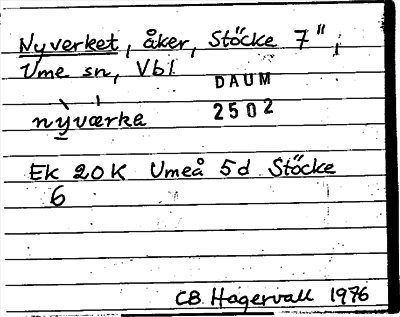 Nyverket, åker, Stöcke 7",
Ume sn, Vbl
DAUM
2502
nỳvǽrka
Ek 20K Umeå 5d Stöcke
6
CB Hagervall 1976